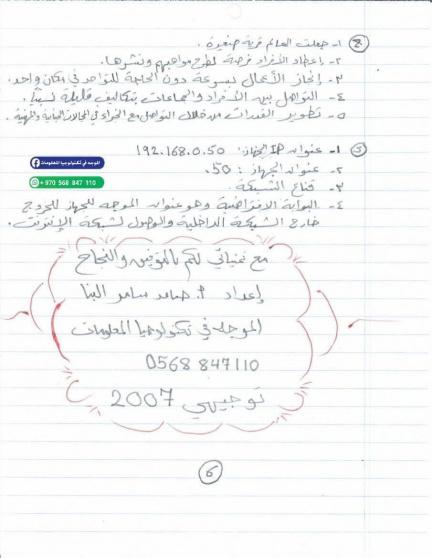 ج) ١- جعلت العالم قرية صغيرة.
٢- إعطاء الأفراد فرصة لطرح مواهبهم ونشرها.
٣- إنجاز الأعمال بسرعة دون الحاجة للتواجد في مكان واحد.
٤- التواصل بين الأفراد والجماعات بتكاليف قليلة نسبياً.
٥- تطوير القدرات من خلال التواصل مع الخبراء في المجالات الحياتية والمهنية.
١- عنوان IP الجهاز: 192.168.0.50
الموجه في تكنولوجيا المعلومات
٢- عنوان الجهاز: 50.
+970 568 847 110
٣- قناع الشبكة.
٤- البوابة الافتراضية وهو عنوان الموجه للجهاز للخروج
خارج الشبكة الداخلية والوصول لشبكة الإنترنت.
مع تمنياتي لكم بالتوفيق والنجاح
إعداد أ. سامر البنا
الموجه في تكنولوجيا المعلومات
0568847110
توجيهي 2007
6